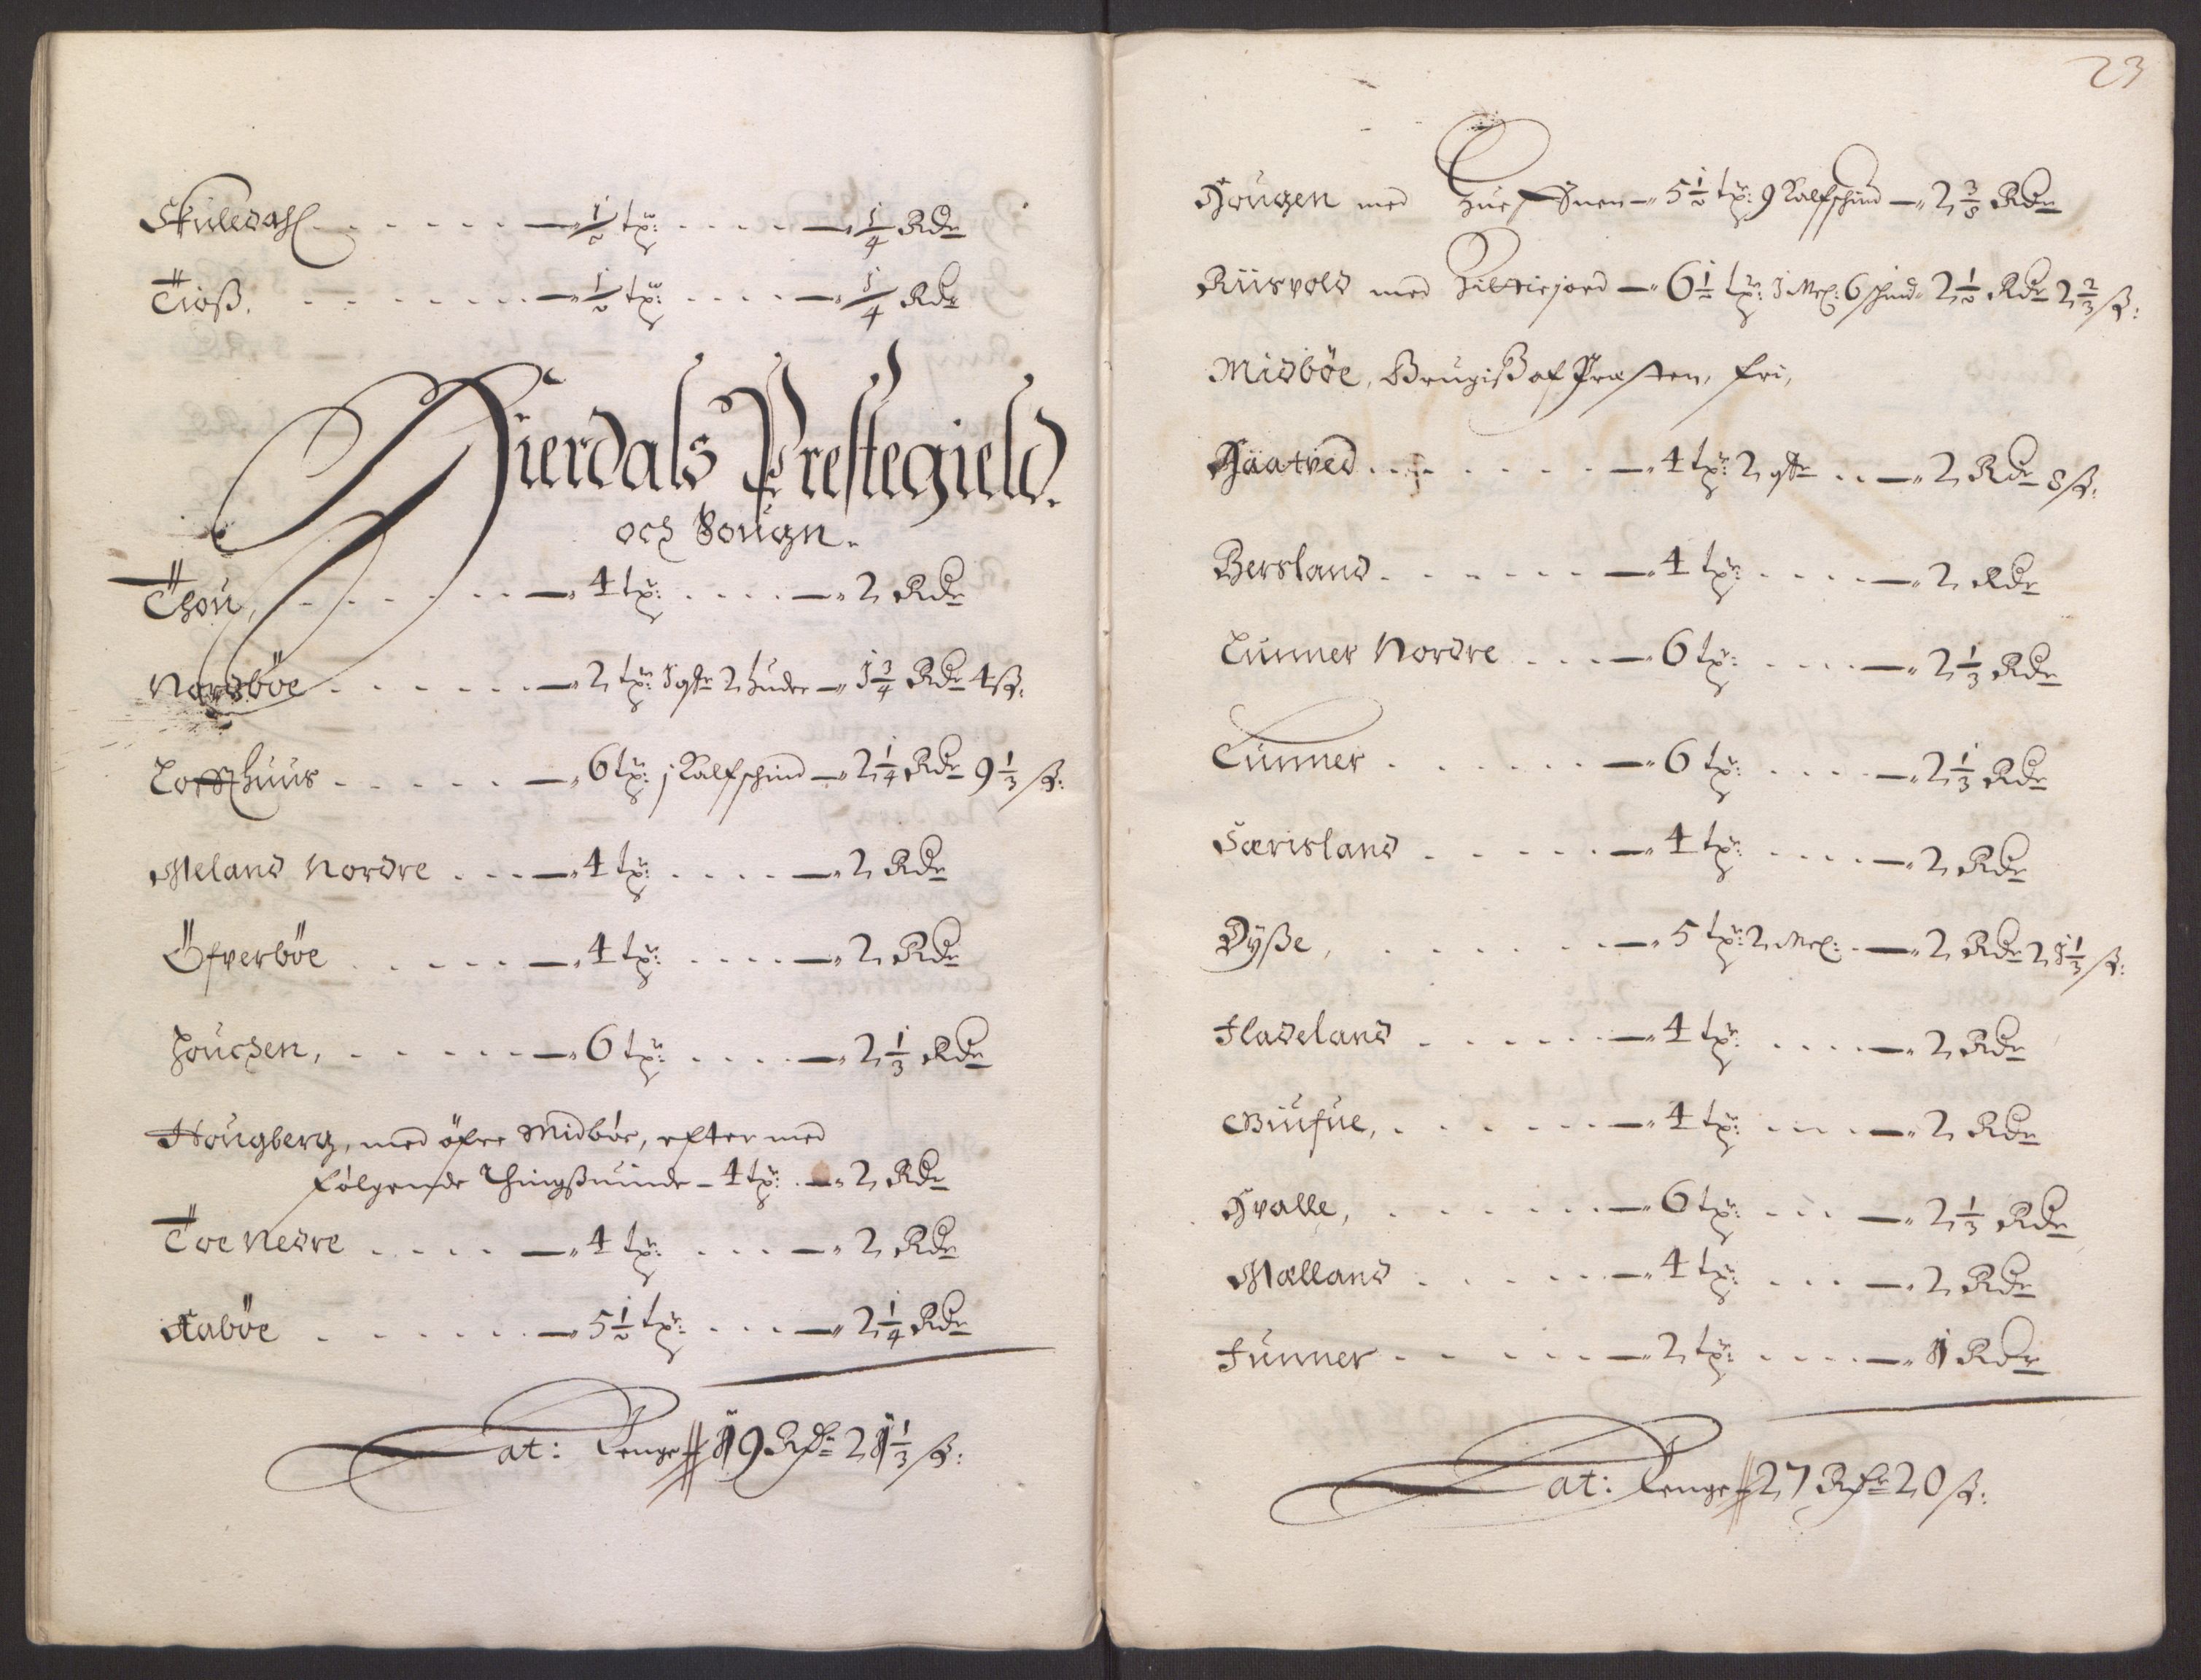 Skuledahl - ½ tpr: - ¼ Rdr
Tioß. - ½ tpr: - ¼ Rdr
Hierdals Prestegield.
och Sougn.
Thou, - 4 tpr: - 2 Rdr
Nordbøe - 2 tpr: 1 qtr 2 huder - 1¾ Rdr 4 ß:
huus - 6 tpr: j Kalfschind - 2¼ Rdr 9⅓ ß:
Meland Nordre - 4 tpr: - 2 Rdr
Öfverbøe - 4 tpr: - 2 Rdr
Houchen, - 6 tpr: - 2⅓ Rdr
Hougberg, med øfre Midbøe, efter med
følgende Thingßuinde - 4 tpr: - 2 Rdr
Toe Nedre - 4 tpr: - 2 Rdr
Aabøe - 5½ tpr: - 2¼ Rdr
Lat: Penge 19 Rdr 21⅓ ß:
23
Hougen med - 5½ tpr: 9 Kalfschind - 2⅜ Rdr
Riisvold med - 6½ tpr: 3 Mel: 6 schind - 2½ Rdr 2⅔ ß:
Midbøe, Brugiß af Præsten, fri,
Haatved - 4 tpr: 2 qtr - 2 Rdr 8 ß:
Bersland - 4 tpr: - 2 Rdr
Lunner Nordre - 6 tpr: - 2⅓ Rdr
Lunner - 6 tpr: - 2⅓ Rdr
Særisland - 4 tpr: - 2 Rdr
Dÿße, - 5 tpr: 2 Mel: - 2 Rdr 21⅓ ß:
Fladeland - 4 tpr: - 2 Rdr
Giufue, - 4 tpr: - 2 Rdr
Hvalle, - 6 tpr: - 2⅓ Rdr
Mælland - 4 tpr: - 2 Rdr
Funner - 2 tpr: - 1 Rdr
Lat: Penge 27 Rdr 20 ß: